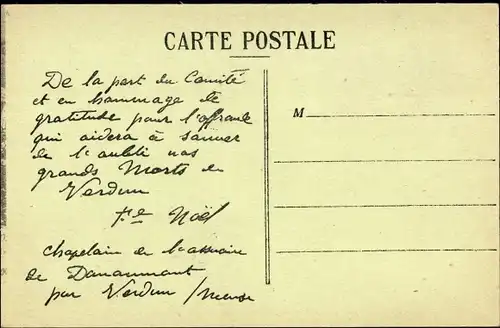 CARTE POSTALE
De la part du Comité
et en hommage de
gratitude pour l'offrande
qui aidera à sauver
de l'oubli nos
grands Morts de
Verdun
Noël
Chapelain de l'ossuaire
de Douaumont
par Verdun /Meuse
M